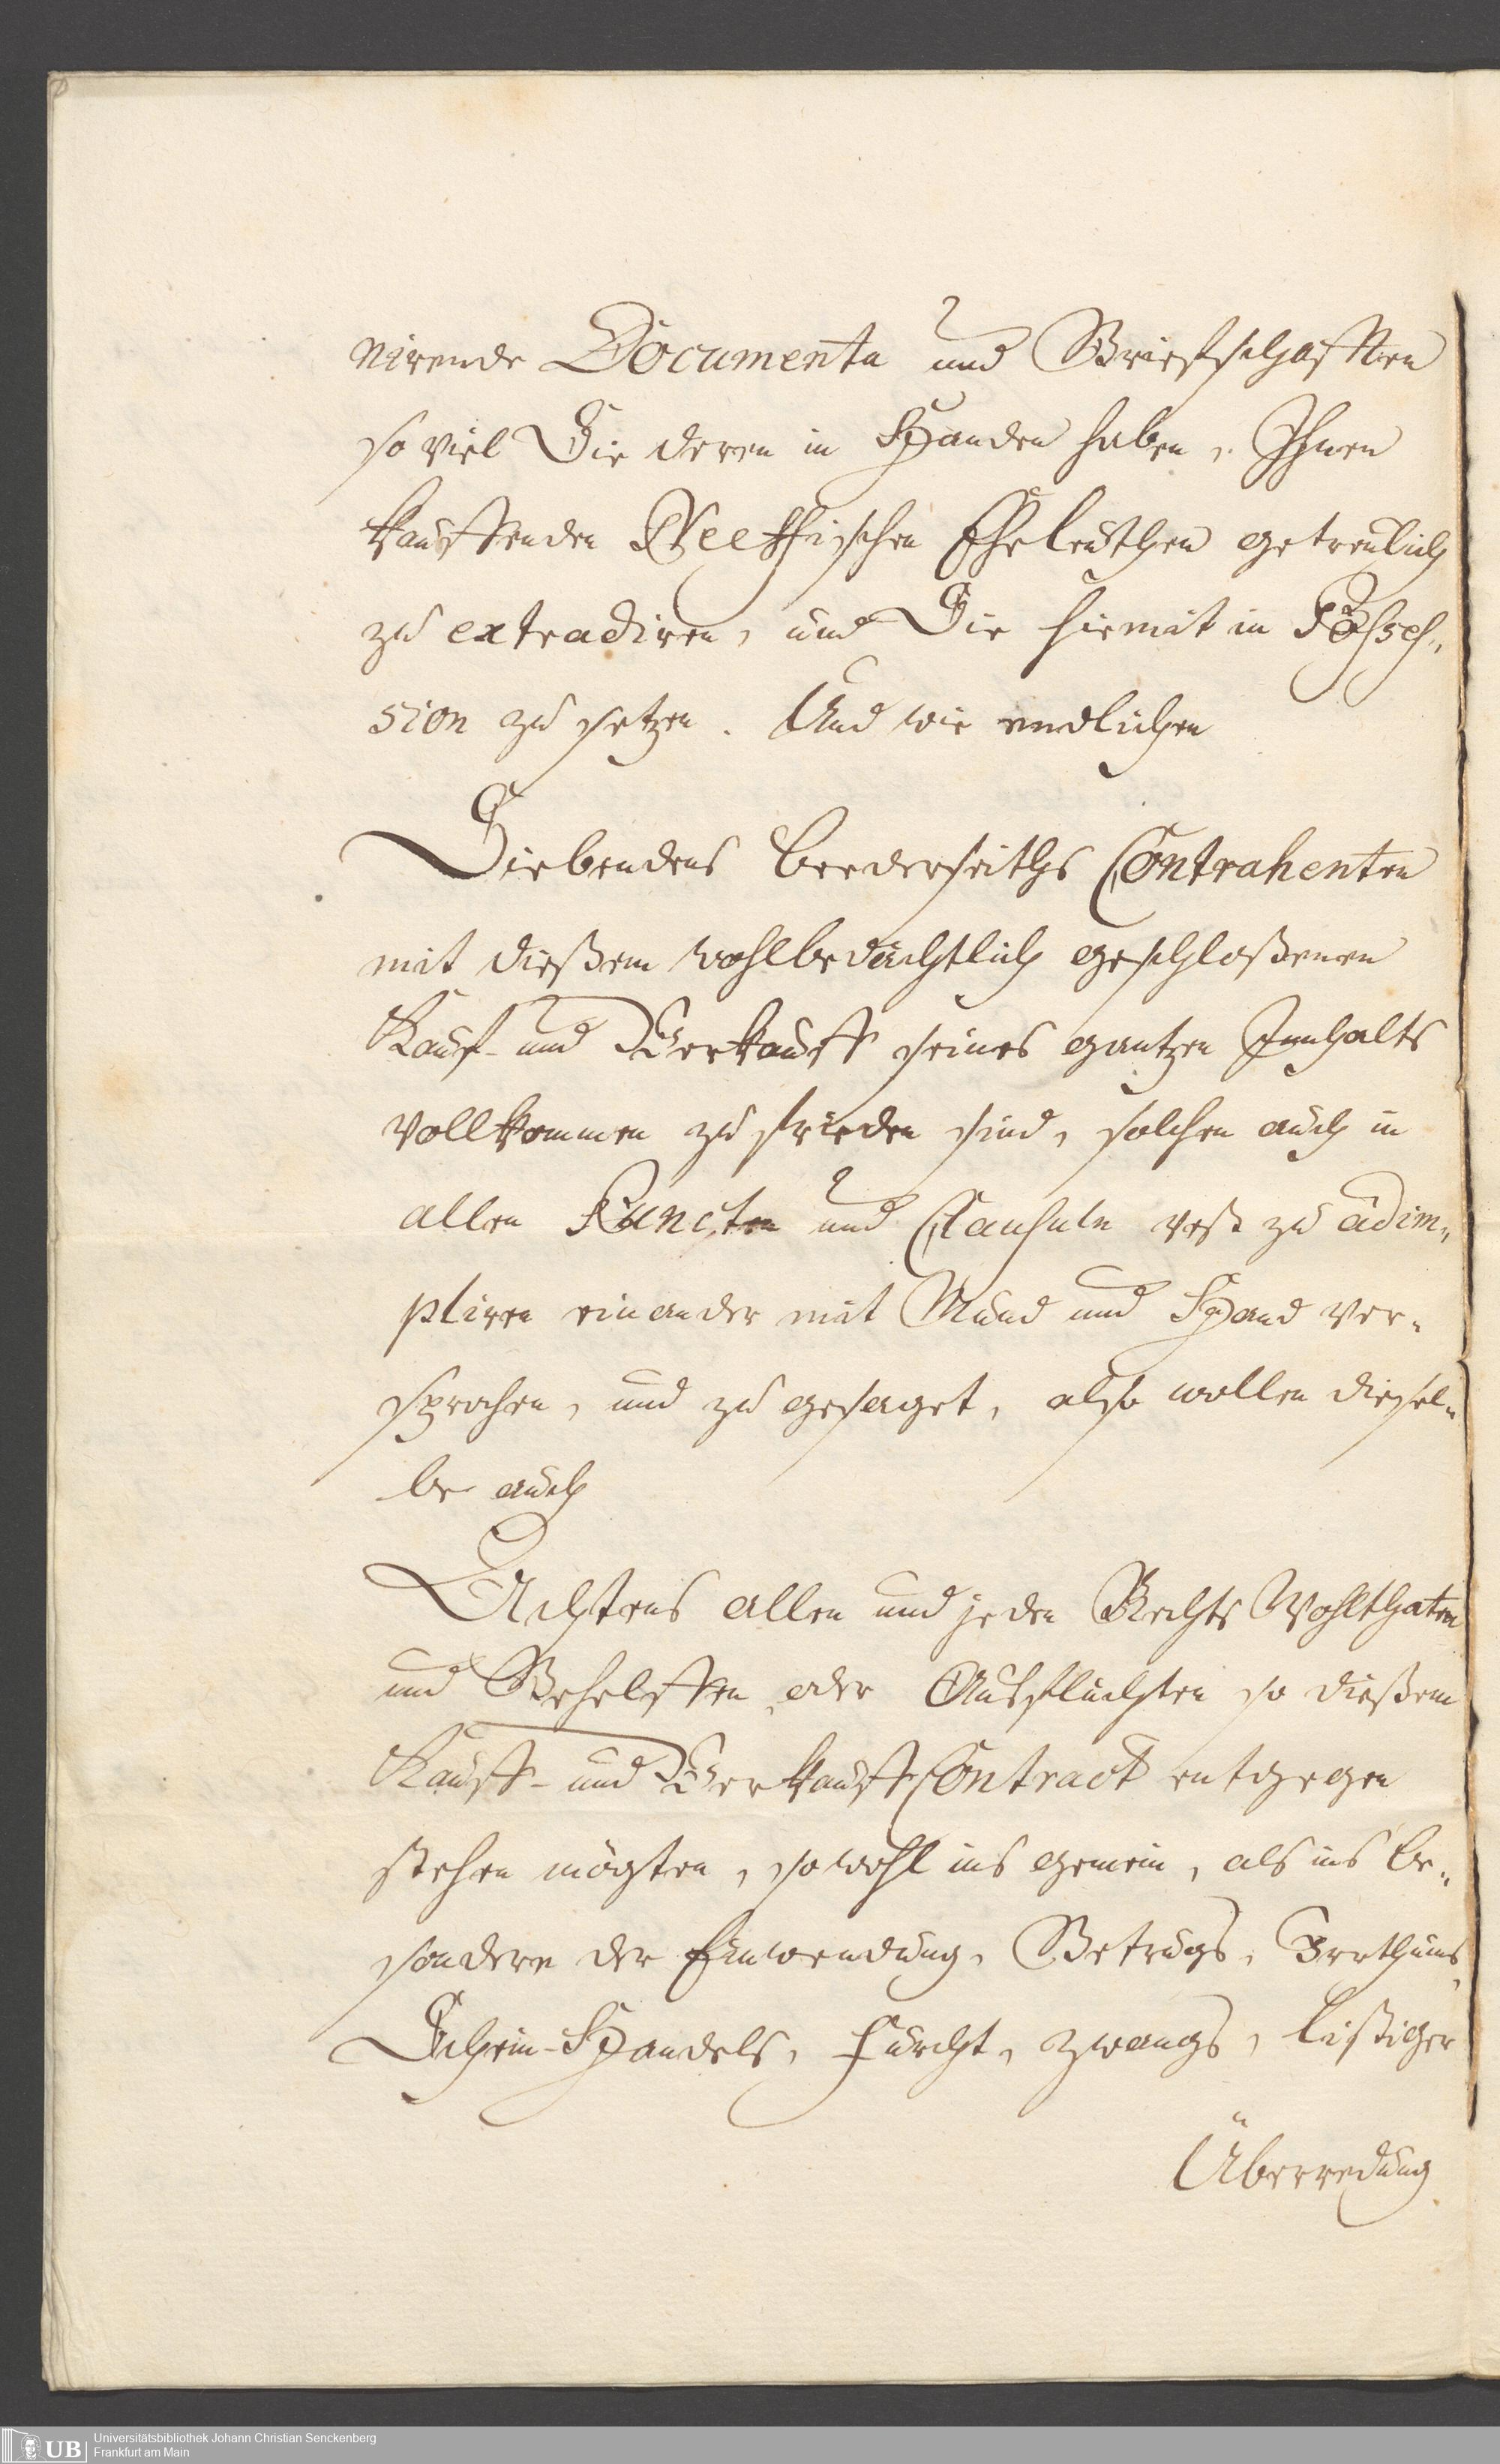 nirende Documenta und Briefschafften
so viel Sie deren in Handen haben, Ihnen
kauffenden Neeffischen Eheleuthen getreulich
zu extradiren, und Sie hiemit in Posses„
sion zu setzen. Und wie endlichen
Siebendens beederseiths Contrahenten
mit dießem wohlbedächtlich geschloßenen
Kauf- und Verkauff seines gantzen Innhalts
vollkommen zu frieden sind, solchen auch in
allen Puncten und Clausuln vest zu adim„
pliren einander mit Mund und Hand ver„
sprochen, und zu gesaget, also wollen diesel„
be auch
Achtens allen und jeden Rechts Wohlthaten
und Behelffen, oder Ausflüchten so dießem
Kauff- und Verkauff Contract entgegen
stehen mögten, so wohl ins gemein, als ins be„
sondere der Einwendung, Betrugs, Irrthums,
Schein-Handels, Furcht, Zwangs, listiger
Überredung
UB
Universitätsbibliothek Johann Christian Senckenberg
Frankfurt am Main